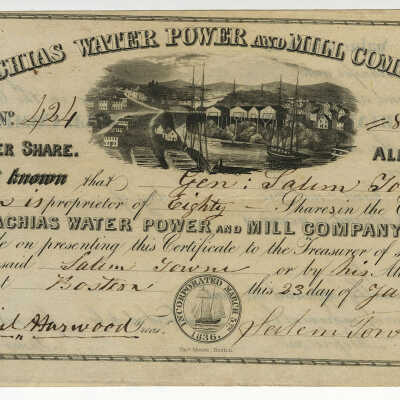 CHIAS WATER POWER AND MILL COMP
No. 424
ER SHARE.
known that Gen: Salem To
is proprietor of Eighty Shares in the
ACHIAS WATER POWER AND MILL COMPANY
le on presenting this Certificate to the Treasurer, of
said Salem Towne or by his
Boston this 23 day of Ja
Harwood Treas. Salem Tow
INCORPORATED MARCH
1836.